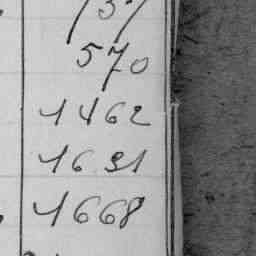 757
570
1462
1631
1668